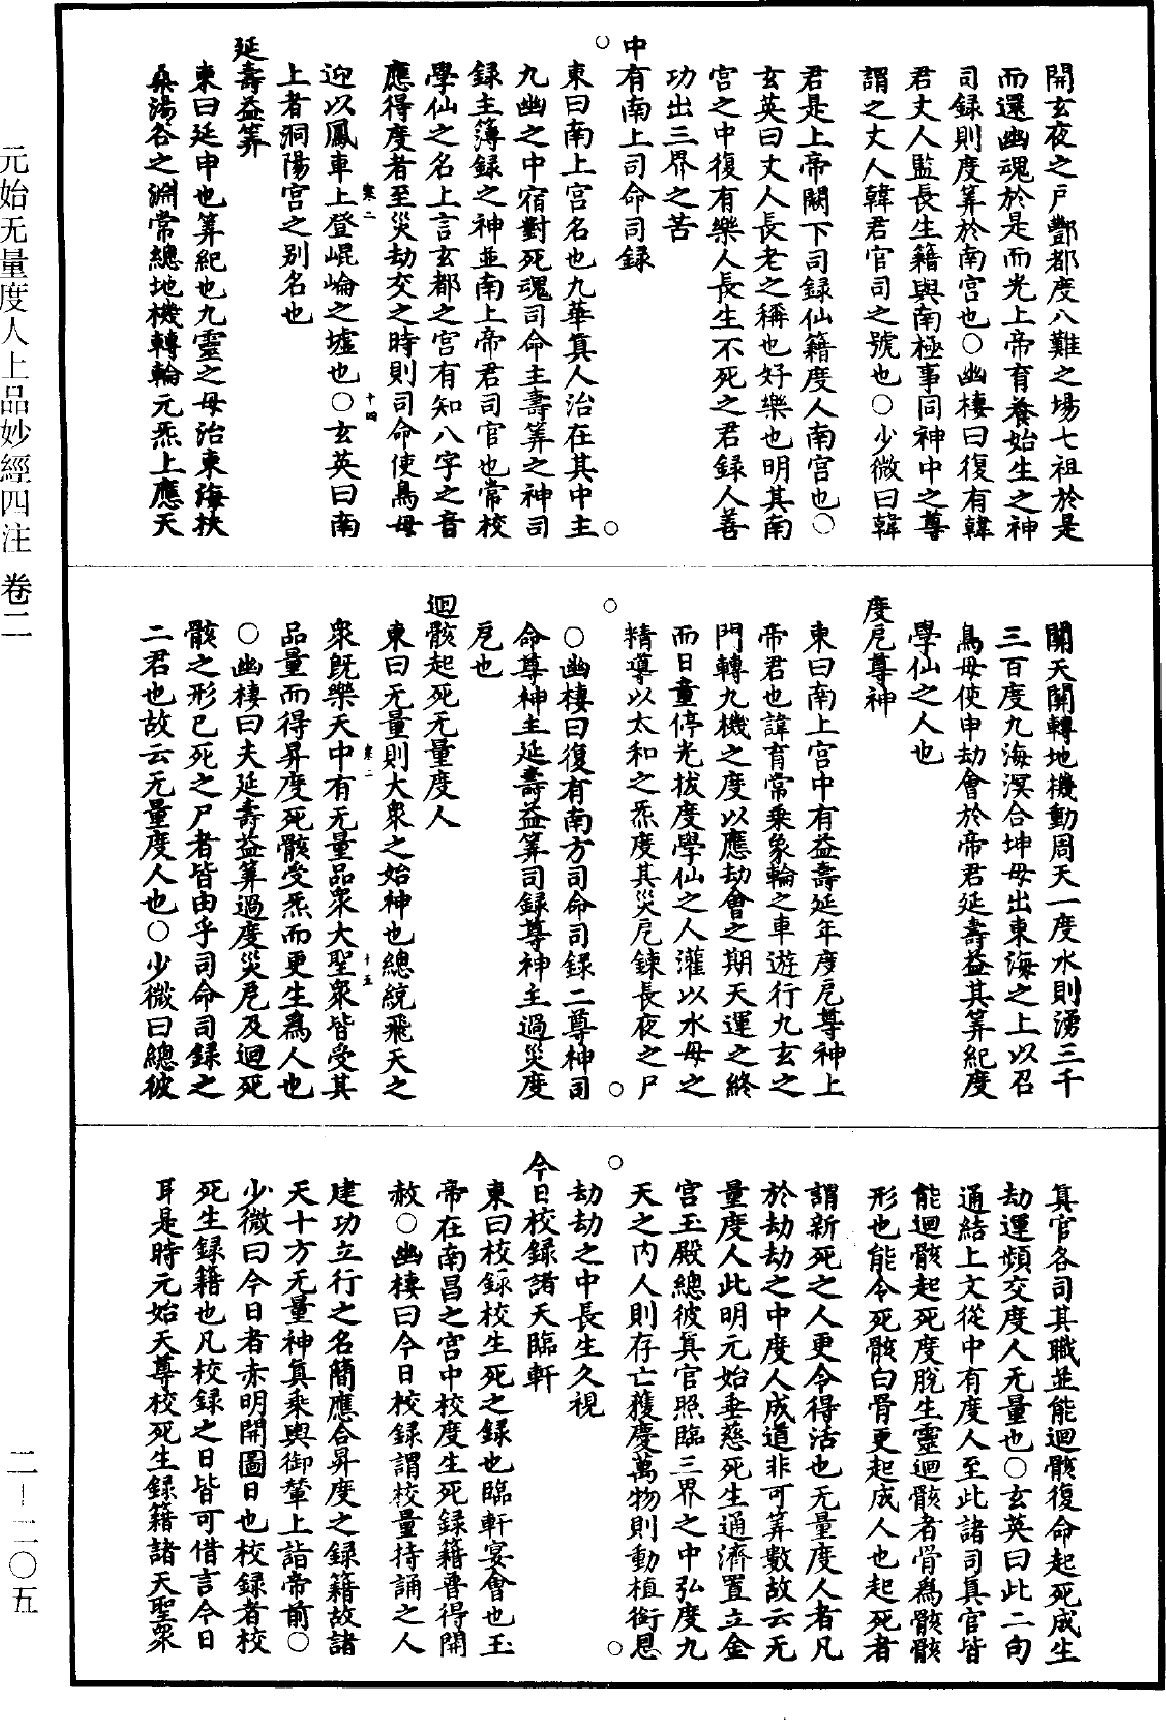 元始无量度人上品妙經四注 卷二
二—二〇五
開玄夜之戶酆都度八難之場七祖於是
而還幽魂於是而光上帝育養始生之神
司録則度筭於南宮也〇幽棲曰復有韓
君丈人監長生籍與南極事同神中之尊
謂之丈人韓君官司之號也〇少微曰韓
君是上帝闕下司録仙籍度人南宮也〇
玄英曰丈人長老之稱也好樂也明其南
宮之中復有樂人長生不死之君録人善
功出三界之苦
中有南上司命司録
東曰南上宮名也九華真人治在其中主
九幽之中宿對死魂司命主壽筭之神司
録主簿録之神並南上帝君司官也常校
學仙之名上言玄都之宮有知八字之音
應得度者至災劫交之時則司命使鳥母
迎以鳳車上登崐崘之墟也〇玄英曰南
上者洞陽宮之別名也
延壽益筭
東曰延申也筭紀也九靈之母治東海扶
桑湯谷之淵常總地機轉輪元炁上應天
關天關轉地機動周天一度水則湧三千
三百度九海溟合坤母出東海之上以召
鳥母使申劫會於帝君延壽益其筭紀度
學仙之人也
度戹尊神
東曰南上宮中有益壽延年度戹尊神上
帝君也諱育常乘象輪之車遊行九玄之
門轉九機之度以應劫會之期天運之終
而日童停光拔度學仙之人灌以水母之
精導以太和之炁度其災戹鍊長夜之尸
〇幽棲曰復有南方司命司録二尊神司
命尊神主延壽益筭司録尊神主過災度
戹也
迴骸起死无量度人
東曰无量則大衆之始神也總統飛天之
衆既樂天中有无量品衆大聖衆皆受其
品量而得昇度死骸受炁而更生爲人也
〇幽棲曰夫延壽益筭過度災戹及迴死
骸之形已死之尸者皆由乎司命司録之
二君也故云无量度人也〇少微曰總彼
真官各司其職並能迴骸復命起死成生
劫運頻交度人无量也〇玄英曰此二句
通結上文從中有度人至此諸司真官皆
能迴骸起死度脫生靈迴骸者骨爲骸骸
形也能令死骸白骨更起成人也起死者
謂新死之人更令得活也无量度人者凡
於劫劫之中度人成道非可筭數故云无
量度人此明元始垂慈死生通濟置立金
宮玉殿總彼真官照臨三界之中弘度九
天之内人則存亡獲慶萬物則動植銜恩
劫劫之中長生久視
今日校録諸天臨軒
東曰校録校生死之録也臨軒宴會也玉
帝在南昌之宮中校度生死録籍普得開
赦〇幽棲曰今日校録謂校量持誦之人
建功立行之名簡應合昇度之録籍故諸
天十方无量神真乘輿御輦上詣帝前〇
少微曰今日者赤明開圖日也校録者校
死生録籍也凡校録之日皆可借言今日
耳是時元始天尊校死生録籍諸天聖衆